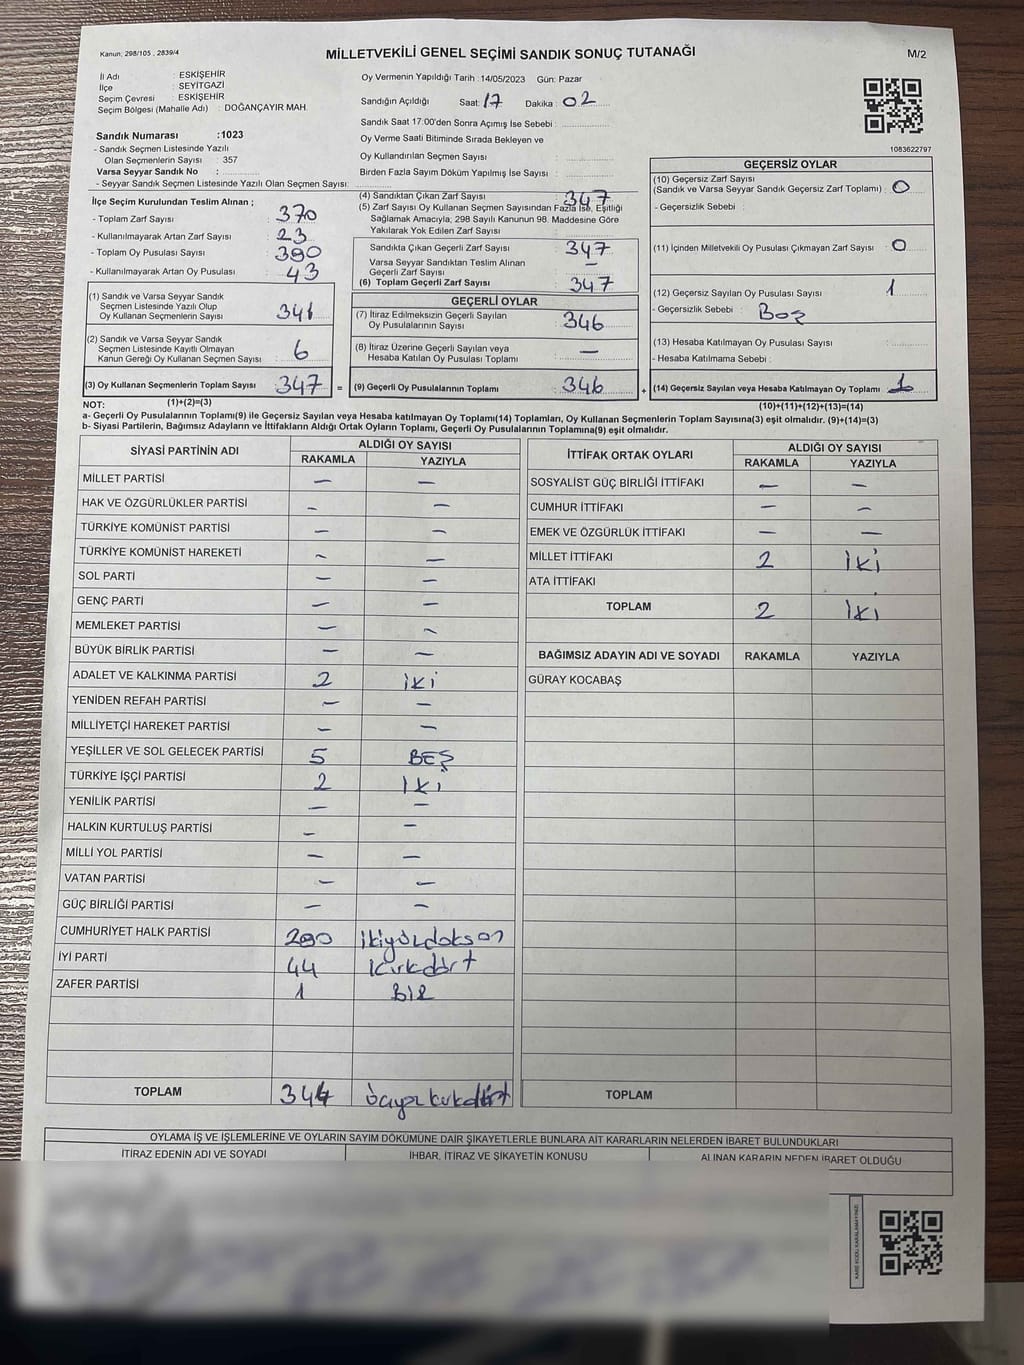 Kanun, 298/105 , 2839/4
MİLLETVEKİLİ GENEL SEÇİMİ SANDIK SONUÇ TUTANAĞI
M/2
İl Adı : ESKİŞEHİR
İlçe : SEYİTGAZİ
Seçim Çevresi : ESKİŞEHİR
Seçim Bölgesi (Mahalle Adı) : DOĞANÇAYIR MAH.
Sandık Numarası :1023
- Sandık Seçmen Listesinde Yazılı
Olan Seçmenlerin Sayısı : 357
Varsa Seyyar Sandık No :
- Seyyar Sandık Seçmen Listesinde Yazılı Olan Seçmen Sayısı:
Oy Vermenin Yapıldığı Tarih :14/05/2023 Gün: Pazar
Sandığın Açıldığı Saat: 17 Dakika : 02
Sandık Saat 17:00'den Sonra Açımış İse Sebebi :
Oy Verme Saati Bitiminde Sırada Bekleyen ve
Oy Kullandırılan Seçmen Sayısı
Birden Fazla Sayım Döküm Yapılmış İse Sayısı :
1083622797
İlçe Seçim Kurulundan Teslim Alınan ;
- Toplam Zarf Sayısı : 370
- Kullanılmayarak Artan Zarf Sayısı : 23
- Toplam Oy Pusulası Sayısı : 390
- Kullanılmayarak Artan Oy Pusulası : 43
(1) Sandık ve Varsa Seyyar Sandık
Seçmen Listesinde Yazılı Olup
Oy Kullanan Seçmenlerin Sayısı 341
(2) Sandık ve Varsa Seyyar Sandık
Seçmen Listesinde Kayıtlı Olmayan
Kanun Gereği Oy Kullanan Seçmen Sayısı 6
(3) Oy Kullanan Seçmenlerin Toplam Sayısı 347 =
(4) Sandıktan Çıkan Zarf Sayısı : 347
(5) Zarf Sayısı Oy Kullanan Seçmen Sayısından Fazla İse, Eşitliği
Sağlamak Amacıyla; 298 Sayılı Kanunun 98. Maddesine Göre
Yakılarak Yok Edilen Zarf Sayısı :
Sandıkta Çıkan Geçerli Zarf Sayısı : 347
Varsa Seyyar Sandıktan Teslim Alınan
Geçerli Zarf Sayısı : —
(6) Toplam Geçerli Zarf Sayısı : 347
GEÇERLİ OYLAR
(7) İtiraz Edilmeksizin Geçerli Sayılan
Oy Pusulalarının Sayısı 346
(8) İtiraz Üzerine Geçerli Sayılan veya
Hesaba Katılan Oy Pusulası Toplamı —
(9) Geçerli Oy Pusulalarının Toplamı 346 +
GEÇERSİZ OYLAR
(10) Geçersiz Zarf Sayısı
(Sandık ve Varsa Seyyar Sandık Geçersiz Zarf Toplamı) : 0
- Geçersizlik Sebebi :
(11) İçinden Milletvekili Oy Pusulası Çıkmayan Zarf Sayısı : 0
(12) Geçersiz Sayılan Oy Pusulası Sayısı : 1
- Geçersizlik Sebebi : Boş
(13) Hesaba Katılmayan Oy Pusulası Sayısı :
- Hesaba Katılmama Sebebi :
(14) Geçersiz Sayılan veya Hesaba Katılmayan Oy Toplamı 1
NOT: (1)+(2)=(3)
(10)+(11)+(12)+(13)=(14)
a- Geçerli Oy Pusulalarının Toplamı(9) ile Geçersiz Sayılan veya Hesaba katılmayan Oy Toplamı(14) Toplamları, Oy Kullanan Seçmenlerin Toplam Sayısına(3) eşit olmalıdır. (9)+(14)=(3)
b- Siyasi Partilerin, Bağımsız Adayların ve İttifakların Aldığı Ortak Oyların Toplamı, Geçerli Oy Pusulalarının Toplamına(9) eşit olmalıdır.
SİYASİ PARTİNİN ADI
ALDIĞI OY SAYISI
RAKAMLA YAZIYLA
MİLLET PARTİSİ — —
HAK VE ÖZGÜRLÜKLER PARTİSİ — —
TÜRKİYE KOMÜNİST PARTİSİ — —
TÜRKİYE KOMÜNİST HAREKETİ — —
SOL PARTİ — —
GENÇ PARTİ — —
MEMLEKET PARTİSİ — —
BÜYÜK BİRLİK PARTİSİ — —
ADALET VE KALKINMA PARTİSİ 2 iki
YENİDEN REFAH PARTİSİ — —
MİLLİYETÇİ HAREKET PARTİSİ — —
YEŞİLLER VE SOL GELECEK PARTİSİ 5 BEŞ
TÜRKİYE İŞÇİ PARTİSİ 2 İki
YENİLİK PARTİSİ — —
HALKIN KURTULUŞ PARTİSİ — —
MİLLİ YOL PARTİSİ — —
VATAN PARTİSİ — —
GÜÇ BİRLİĞİ PARTİSİ — —
CUMHURİYET HALK PARTİSİ 290 ikiyüzdoksan
İYİ PARTİ 44 kırkdört
ZAFER PARTİSİ 1 BİR
TOPLAM 344 üçyüzkırkdört
İTTİFAK ORTAK OYLARI
ALDIĞI OY SAYISI
RAKAMLA YAZIYLA
SOSYALİST GÜÇ BİRLİĞİ İTTİFAKI — —
CUMHUR İTTİFAKI — —
EMEK VE ÖZGÜRLÜK İTTİFAKI — —
MİLLET İTTİFAKI 2 İki
ATA İTTİFAKI
TOPLAM 2 İki
BAĞIMSIZ ADAYIN ADI VE SOYADI RAKAMLA YAZIYLA
GÜRAY KOCABAŞ
TOPLAM
OYLAMA İŞ VE İŞLEMLERİNE VE OYLARIN SAYIM DÖKÜMÜNE DAİR ŞİKAYETLERLE BUNLARA AİT KARARLARIN NELERDEN İBARET BULUNDUKLARI
İTİRAZ EDENİN ADI VE SOYADI İHBAR, İTİRAZ VE ŞİKAYETİN KONUSU ALINAN KARARIN NEDEN İBARET OLDUĞU
KARE KODU KARALAMAYINIZ!